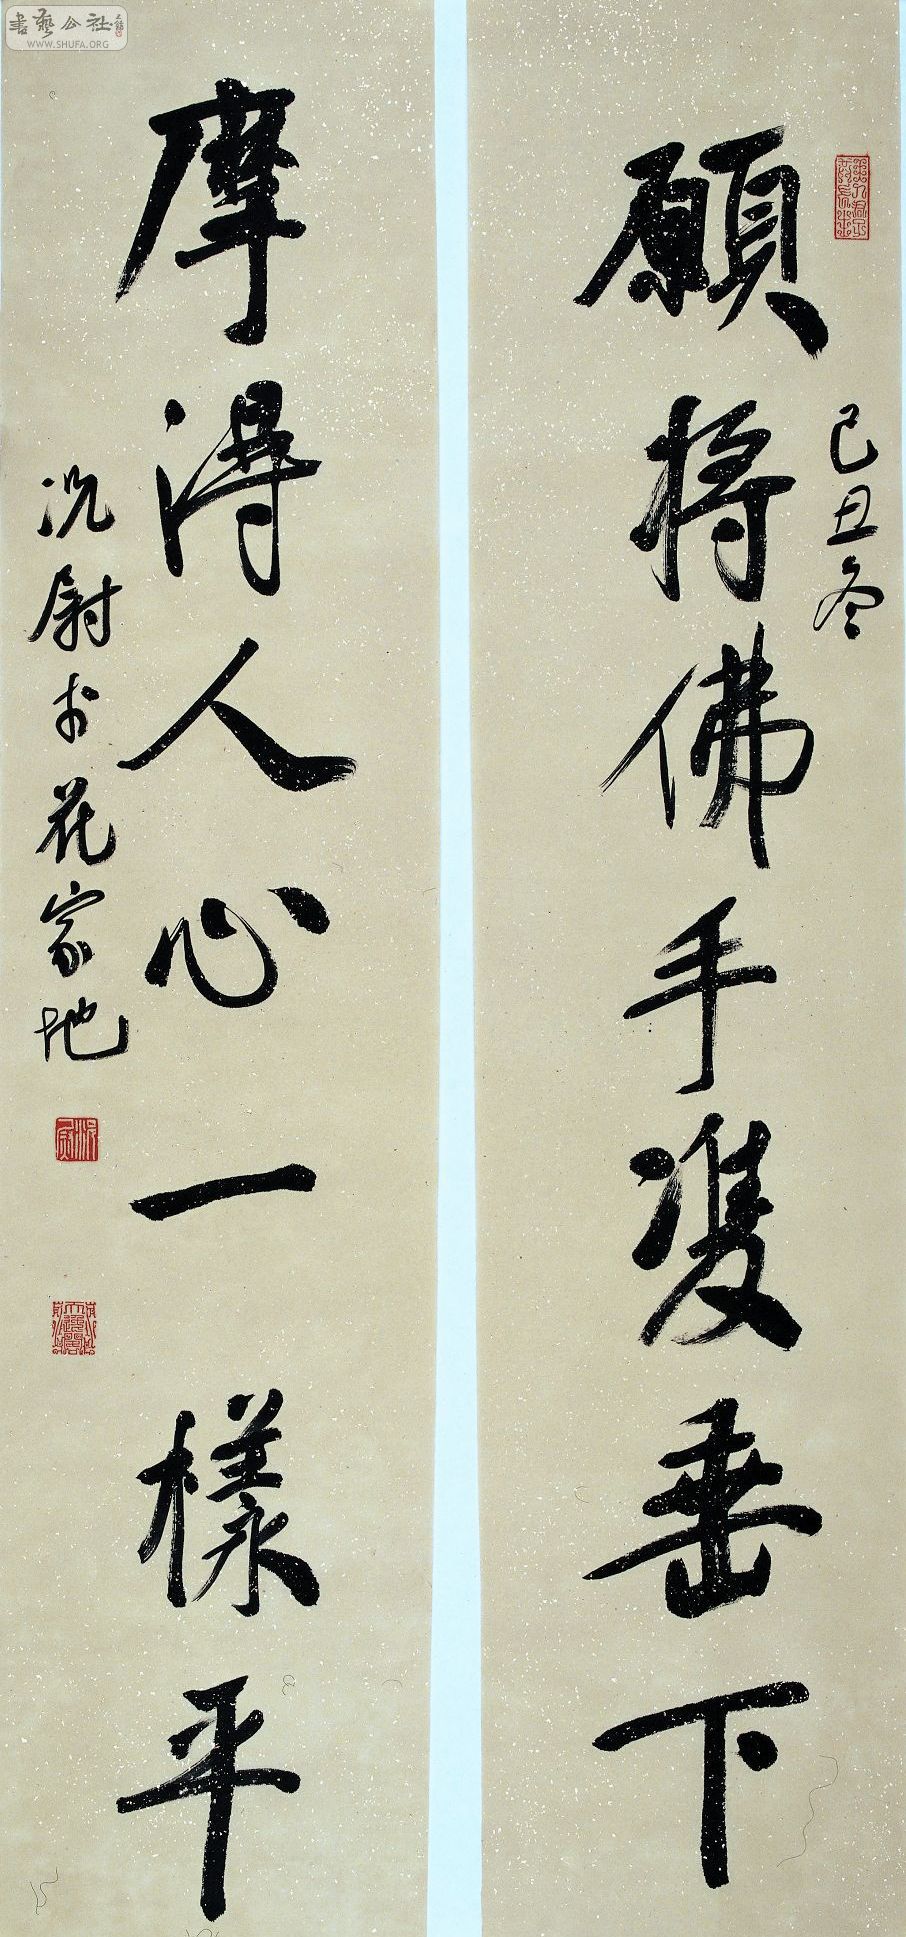 己丑冬
願將佛手雙垂下
摩得人心一樣平
况尉於花家地
書藝公社
WWW.SHUFA.ORG